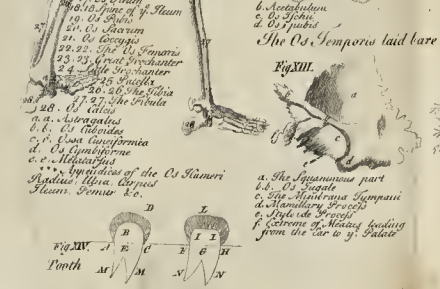 18.18. Spine of yᵉ Ileum
19. Os Pubis
20. Os Sacrum
21. Os Coccygis
22.22. The Os Femoris
23.23. Great Trochanter
24. Little Trochanter
25 Patella
26.26. The Tibia
27.27. The Fibula
28. Os Calcis
a.a. Astragalus
b.b. Os Cuboides
c.c. Ossa Cuneiformia
d. Os Cymbiforme
e.e. Metatarsus
Appendices of the Os Humeri
Radius, Ulna, Carpus
Ileum, Femur &c.
b. Acetabulum
c. Os Ischii
d. Os pubis
The Os Temporis laid bare
Fig XIII.
a. The Squammous part
b.b. Os Jugale
c. The Membrana Tympani
d. Mamillary Process
e. Styloide Process
f. Extreme of Meatus leading
from the Ear to yᵉ Palate
Fig. XIV.
Tooth
D
A E C
M M
L
I I
F G H
N N